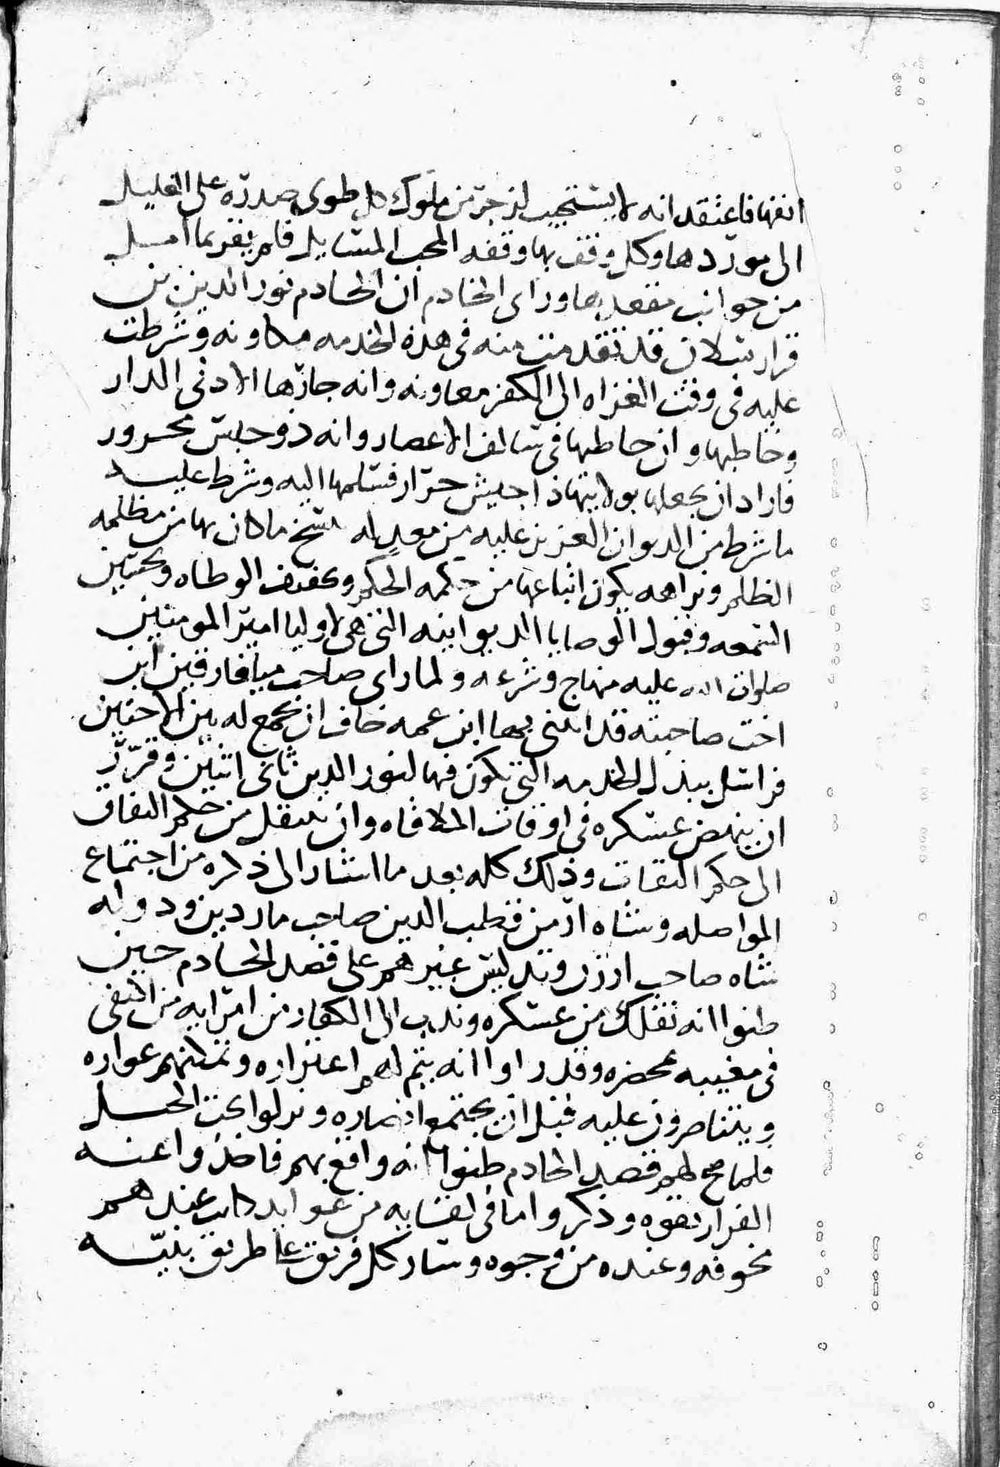 انفها فاعتقد انه لا يستجيب لزجرتن ملوك كل طوى صدره على الغليل
الى موردها وكل وقف بها وقفه المحب المسايل فلم يفز بما امل
من جوانب مقعدها وراى الخادم ان الخادم نور الدين بن
قرا رسلان قد تقدمت منه فى هذه الخدمه مكاونه وشرطت
عليه فى وقت الغزاه الى الكفر معاونه وانه جارها الادنى الدار
وخاطبها وان خاطبها فى سالف الاعصار وانه ذو جيش مجرور
فاراد ان يجعل بولايتها ذا جيش جرار فسلمها اليه وشرط عليه
ما شرط من الديوان العزيز عليه من معدله تنسخ ما كان بها من مظلمه
الظلم ونزاهه يكون اتباعها من حكمه الحكم وتخفيف الوطاه وتحسين
السمعه وقبول الوصايا الديوانيه التى هى لاوليا امير المومنين
صلوات الله عليه منهاج وشرعه ولما راى صاحب ميافارقين ان
اخت صاحبته قد ابتنى بها ابن عمه خاف ان يجمع له بين الاختين
فراسل ببذل الخدمه التى يكون فيها لنور الدين ثانى اثنين وقرر
ان ينهض عسكره فى اوقات الملاقاه وان ينتقل من حكم النفاق
الى حكم الثقات وذلك كله بعد ما اشار الى ذكره من اجتماع
المواصله وشاه ارمن قطب الدين صاحب ماردين ودوله
شاه صاحب ارزن وبدليس غيرهم على قصد الخادم حين
ظنوا انه تفلك من عسكره وندب الى الكفار من امرايه من اكتفى
فى مغيبه بمحضره وقدروا انه يتم لهم اغتراره وتمكنهم عواره
ويتناصرون عليه قبل ان يجتمع انصاره ونزلوا تحت الجبل
فلما صح لهم قصد الخادم ظنوا انه واقع بهم فاخذوا اعنه
الفرار بقوه وذكروا ما فى لقايه من عوايد كانت عندهم
مخوفه وعنده مرجوه وسار كل فريق على طريق بنيه